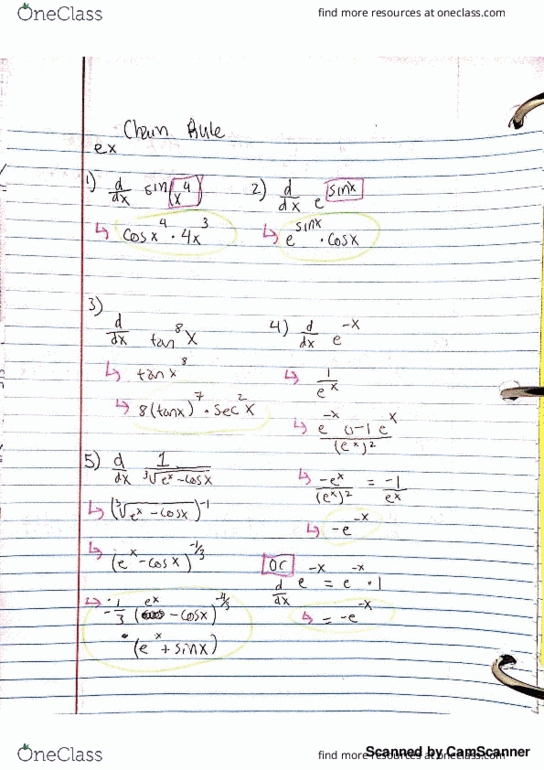 OneClass
find more resources at oneclass.com
Chain Rule
ex
1) d/dx sin(x⁴)
↳ cosx⁴ · 4x³
2) d/dx e^sinx
↳ e^sinx · cosx
3) d/dx tan⁸x
↳ tanx⁸
↳ 8(tanx)⁷ · sec²x
4) d/dx e^-x
↳ 1/e^x
↳ 0-1e^x/(e^x)²
↳ -e^x/(e^x)² = -1/e^x
↳ -e^-x
Or
d/dx e^-x = e^-x · 1
↳ = -e^-x
5) d/dx 1/³√(e^x-cosx)
↳ (³√(e^x-cosx))^-1
↳ (e^x-cosx)^-1/3
↳ -1/3 (e^x-cosx)^-4/3
· (e^x+sinx)
OneClass
find more resources at oneclass.com
Scanned by CamScanner